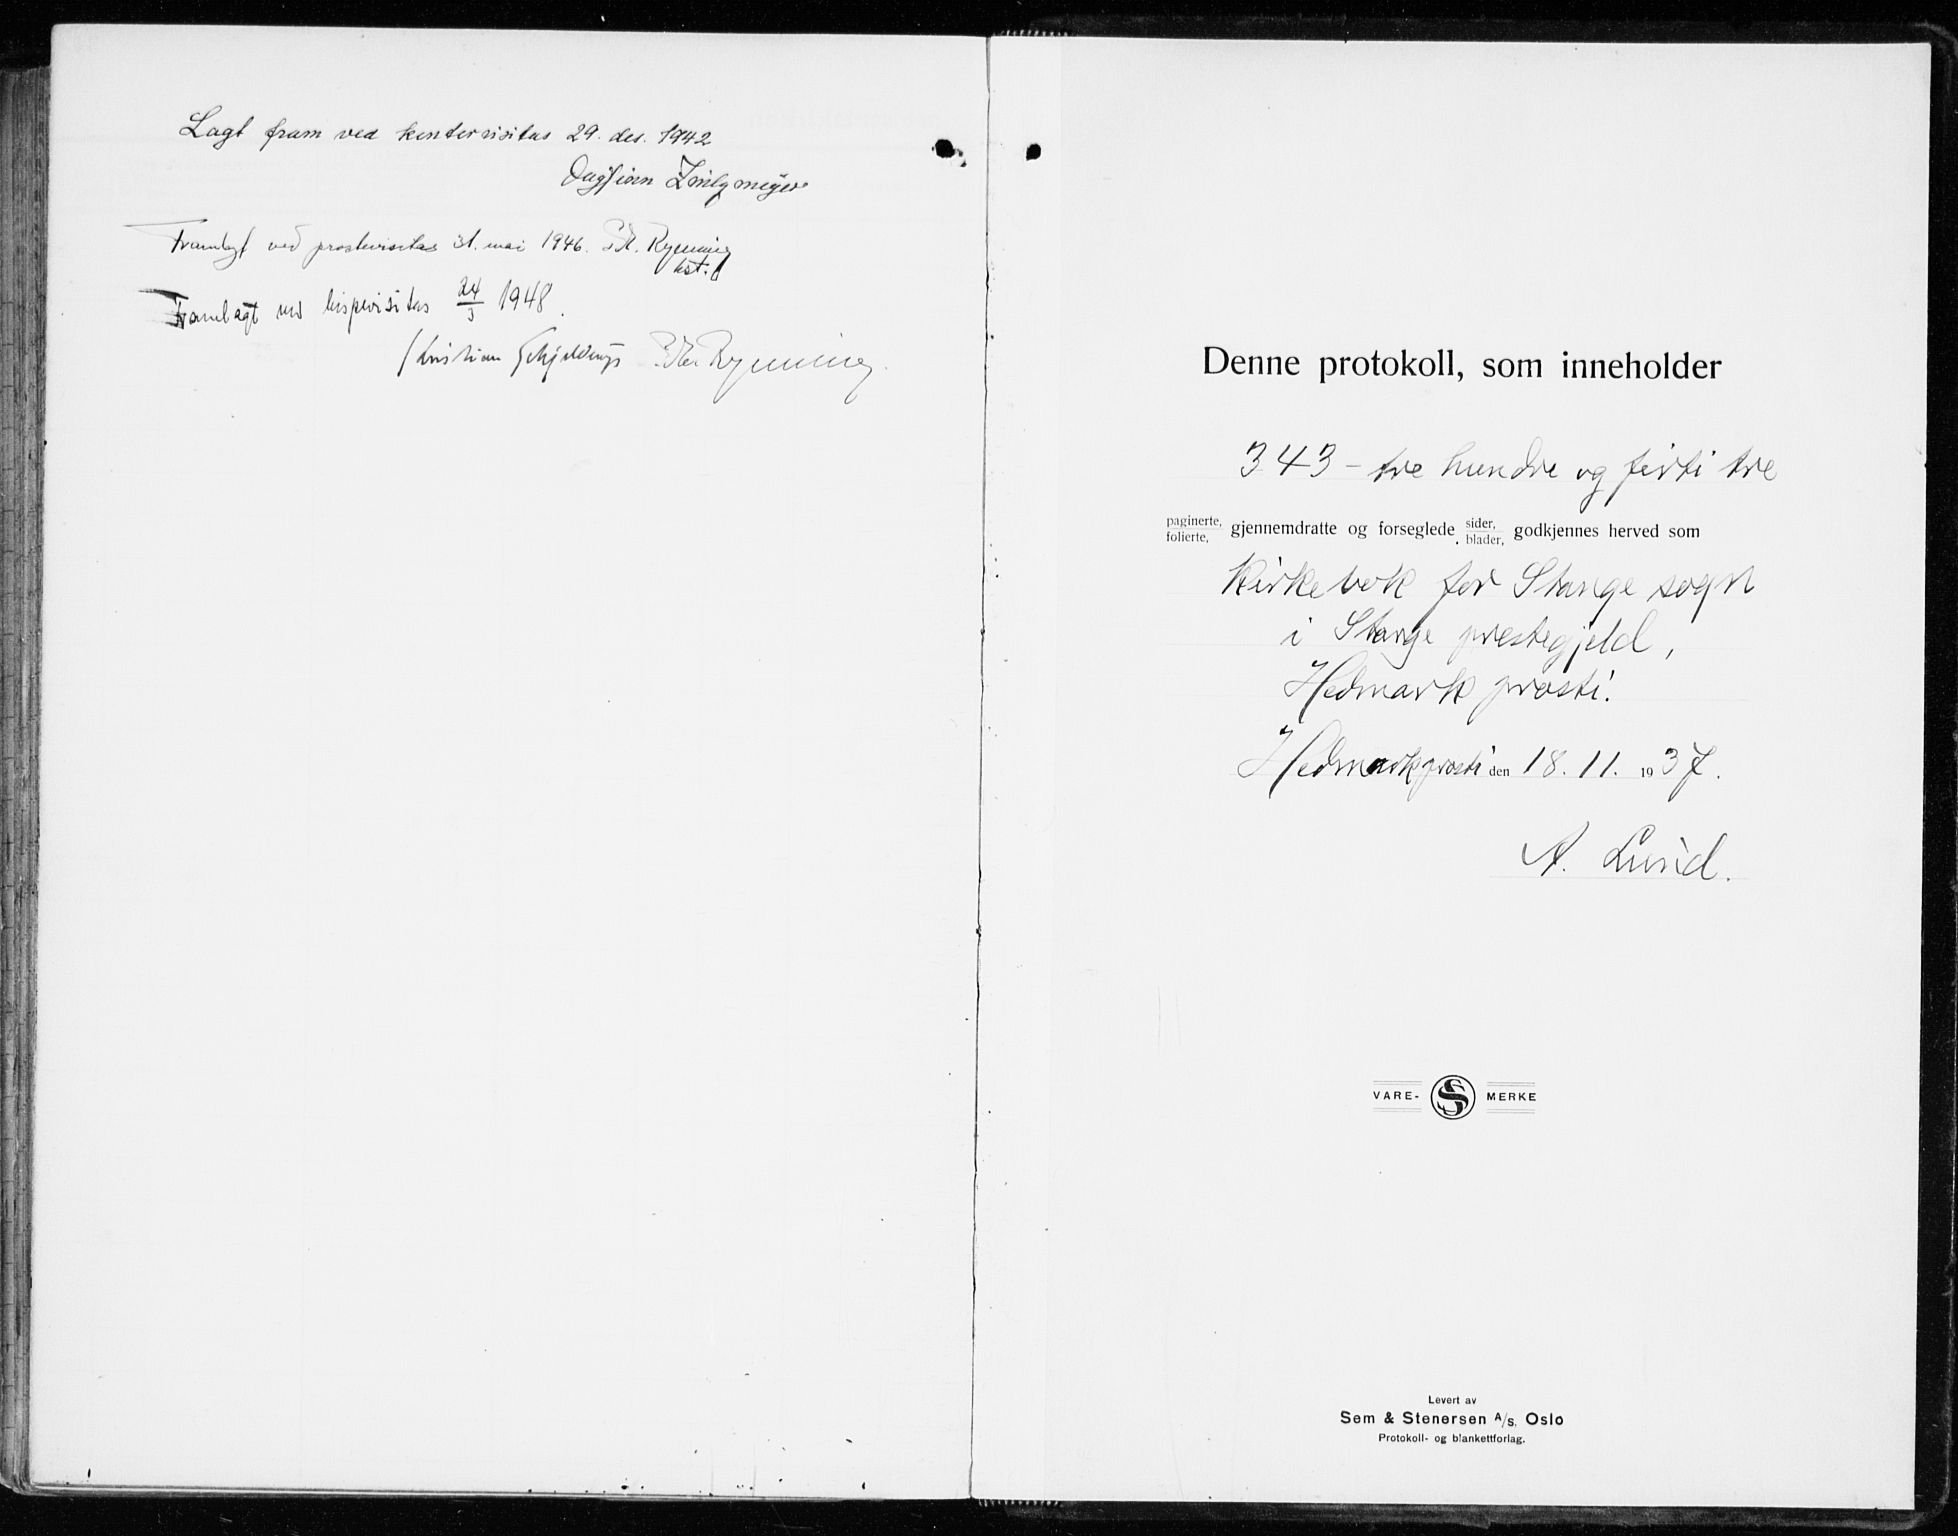 Lagt fram ved kontorvisitas 29. des. 1942
Dagfinn Zwilgmeyer
Framlagt ved prostevisitas 31. mai 1946. P. Kr. Rynning
kst.
Framlagt ved bispevisitas 24/5 1948.
Kristian Schjelderup Peter Rynning.
Denne protokoll, som inneholder
343 - tre hundre og firti tre
paginerte, folierte, gjennemdratte og forseglede sider, blader, godkjennes herved som
Kirkebok for Stange sogn
i Stange prestegjeld,
Hedmark prosti.
Hedmark prosti den 18. 11. 1937.
A. Lunid.
VARE- S MERKE
Levert av
Sem & Stenersen A/s. Oslo
Protokoll- og blankettforlag.